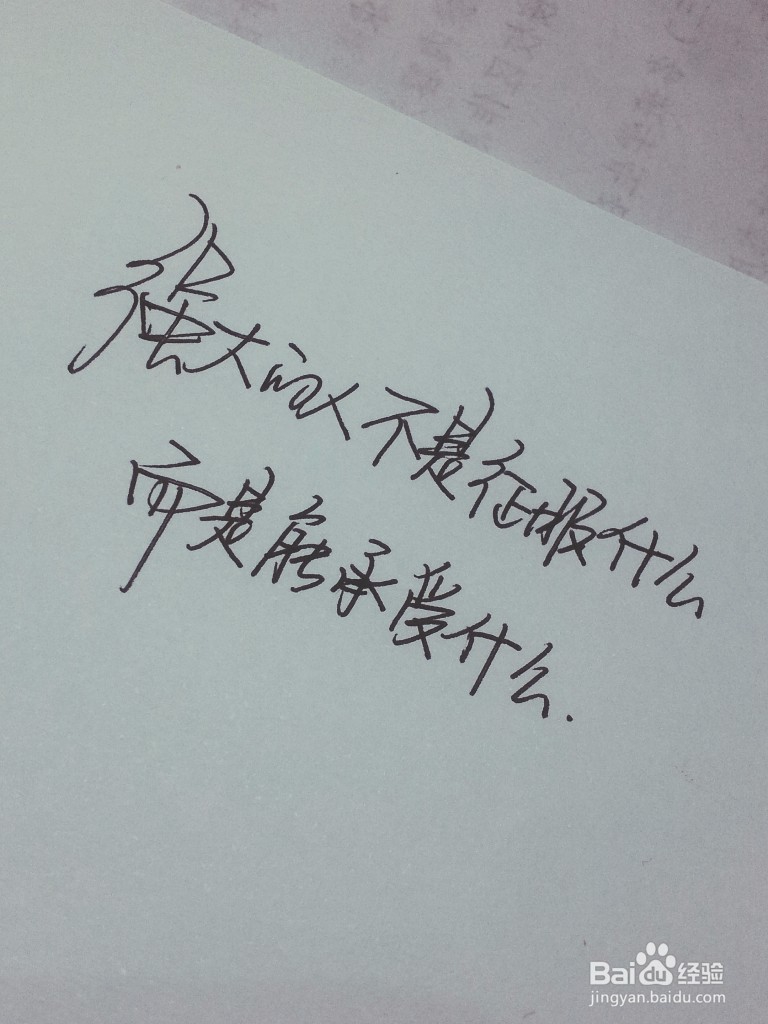 强大的人不是征服什么
而是能承受什么.
Baidu经验
jingyan.baidu.com